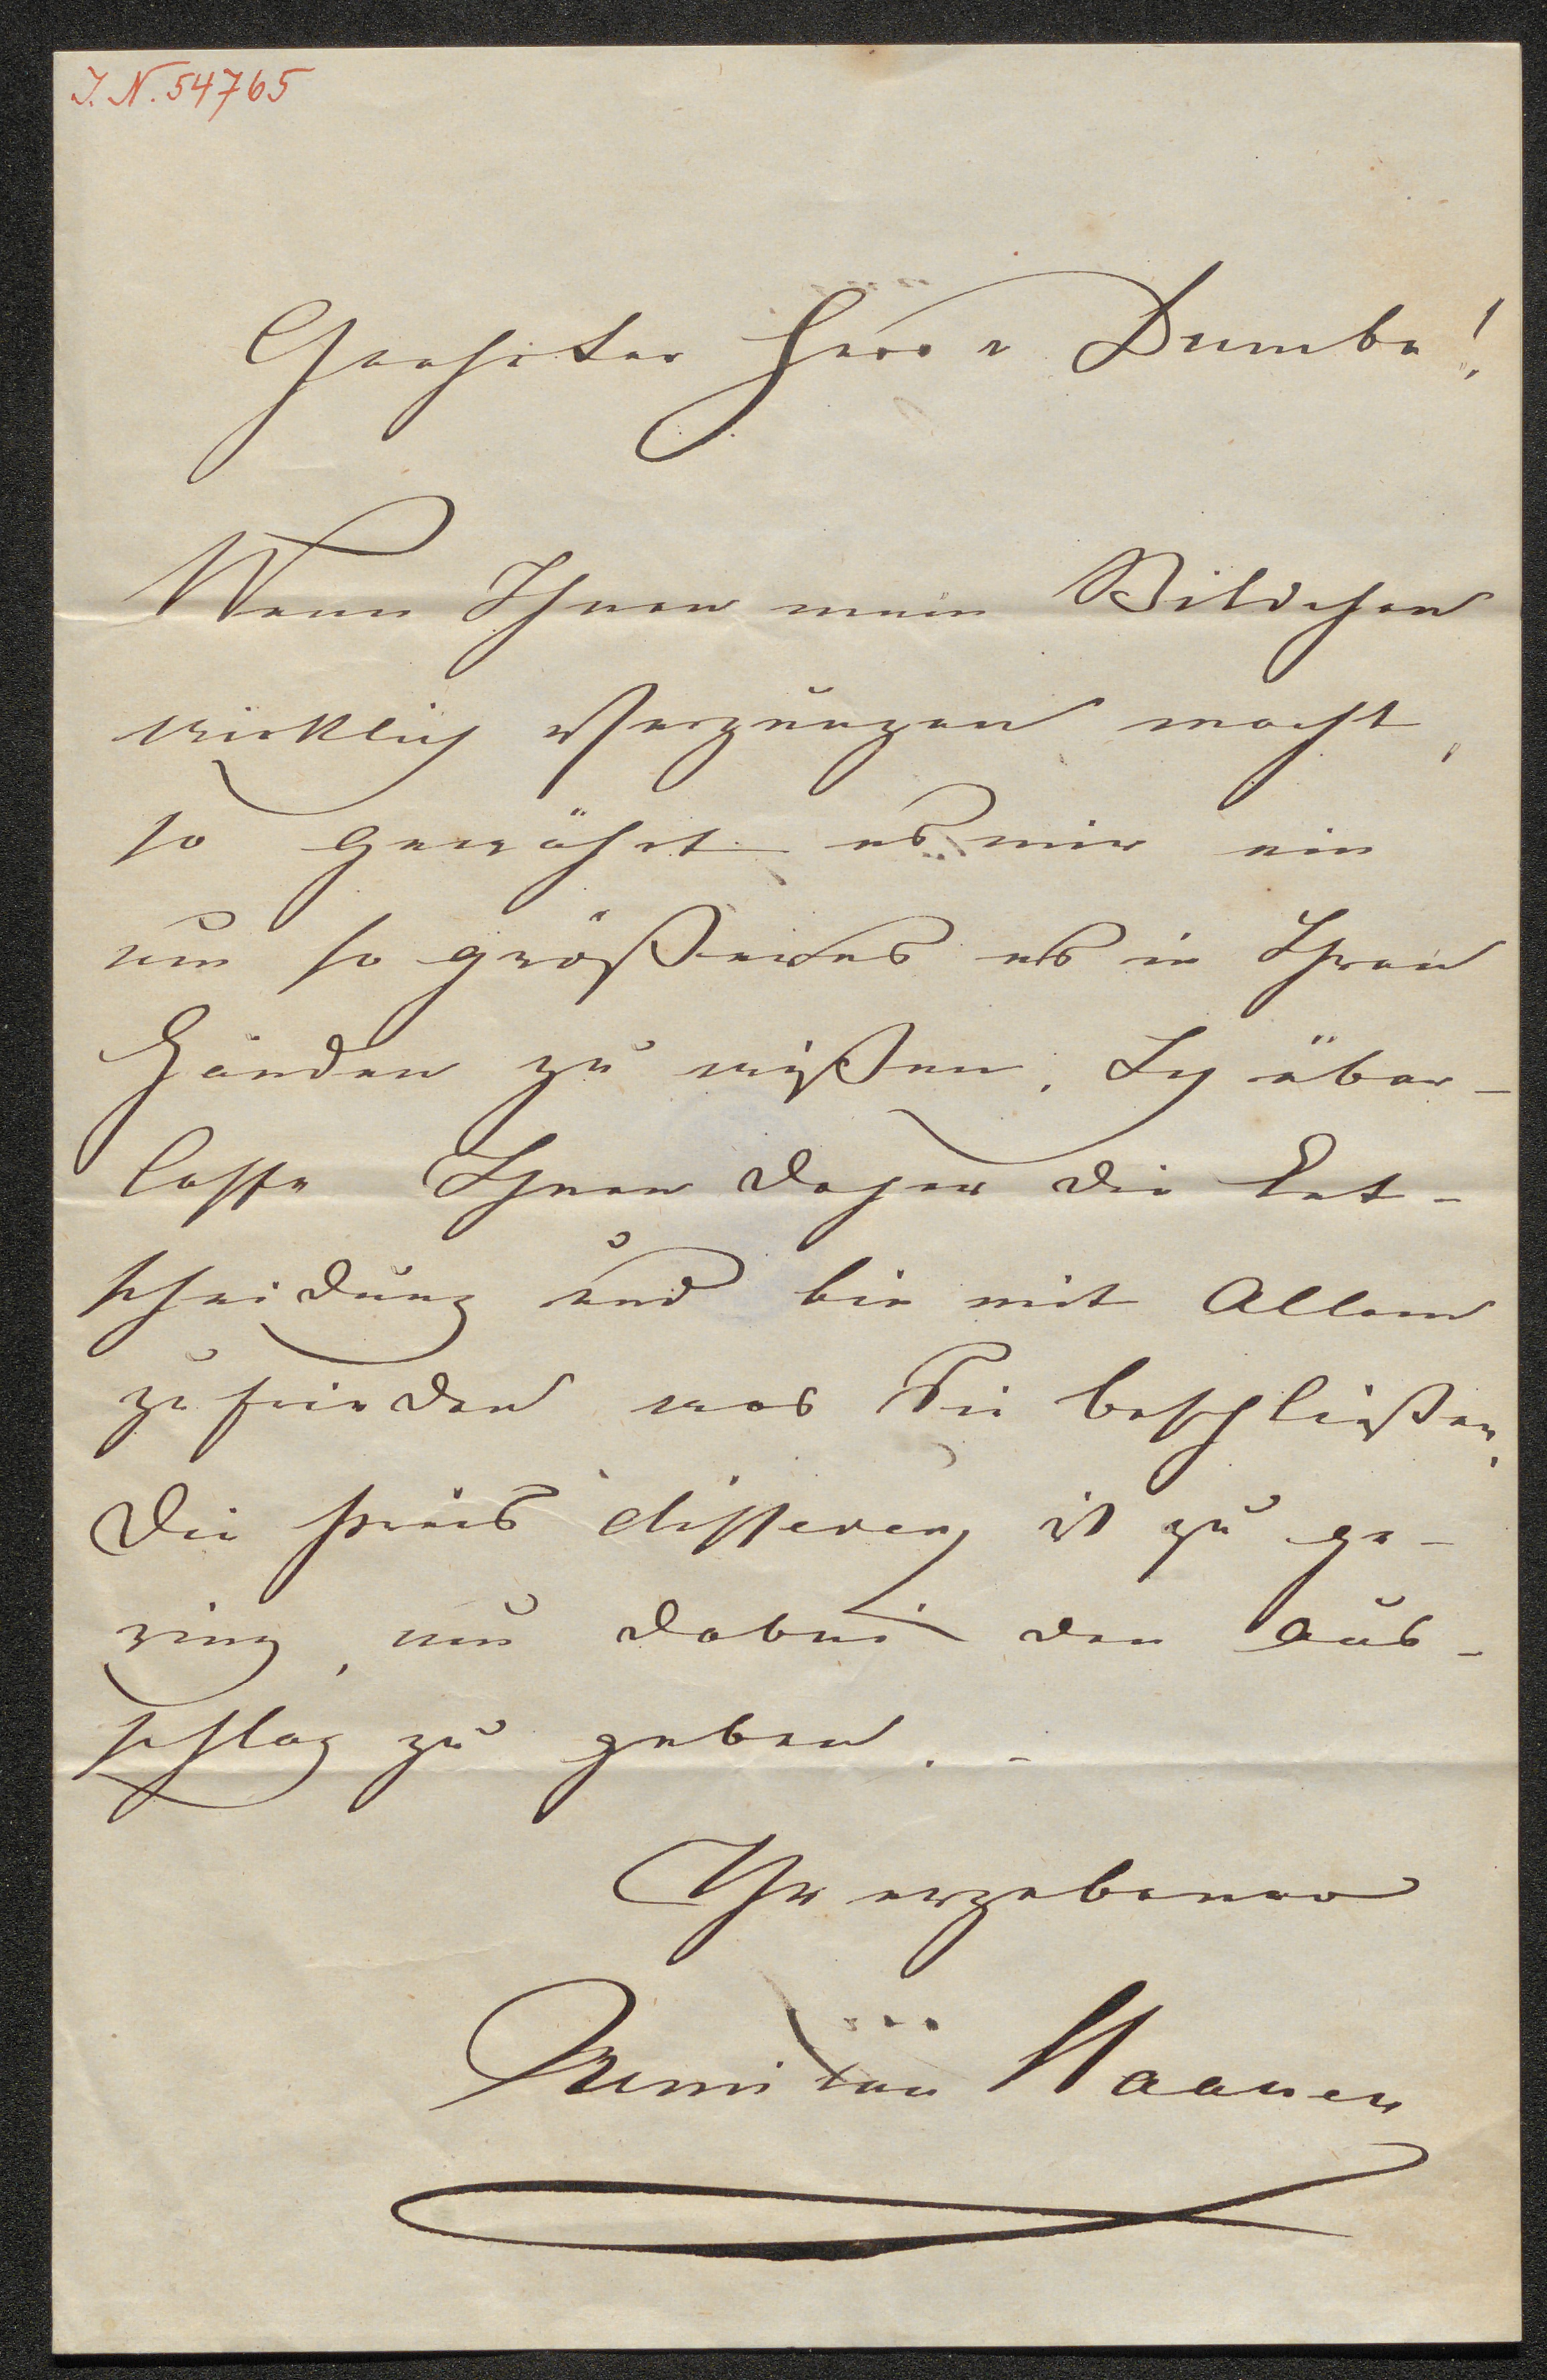 I. N. 54765
Geehrter Herr v. Dumba!
Wenn Ihnen mein Bildchen
wirklich Vergnügen macht,
so gewährt es mir ein
um so größeres es in Ihren
Händen zu wißen. Ich über-
lasse Ihnen daher die Ent-
scheidung und bin mit Allem
zufrieden was Sie beschließen,
die preis differenz ist zu ge-
ring, um dabei den Aus-
schlag zu geben. -
Ihr ergebener
Remi van Haanen